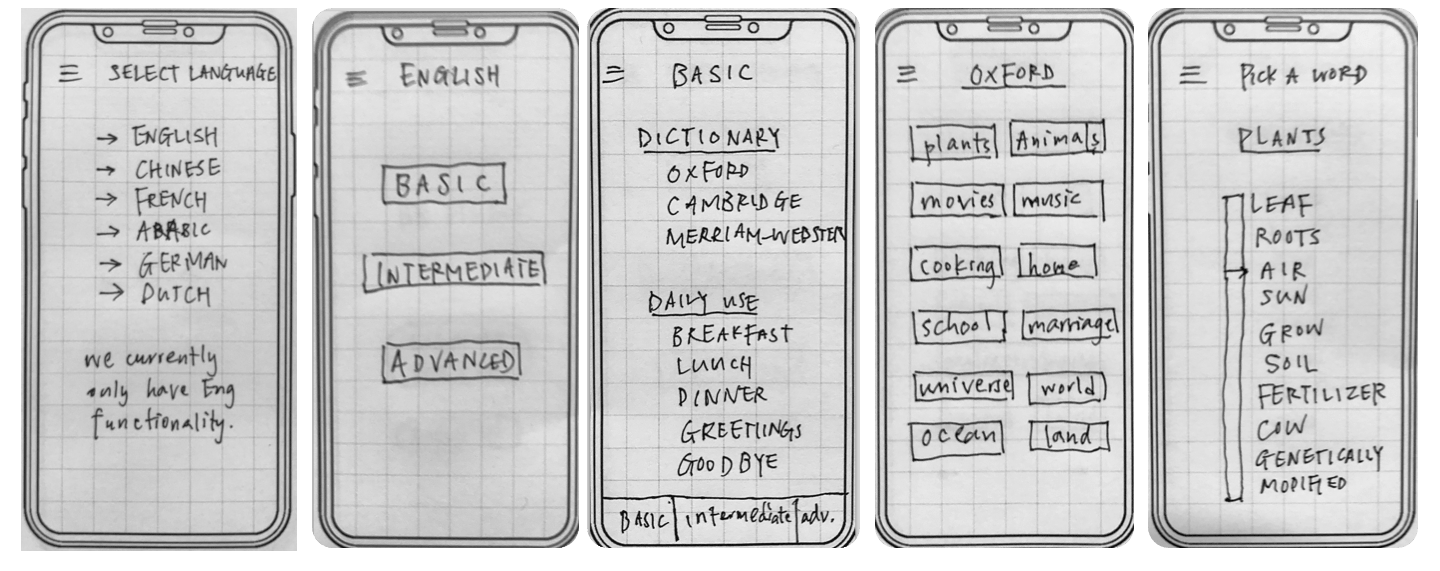 SELECT LANGUAGE
→ ENGLISH
→ CHINESE
→ FRENCH
→ ARABIC
→ GERMAN
→ DUTCH
we currently
only have Eng
functionality.
ENGLISH
BASIC
INTERMEDIATE
ADVANCED
BASIC
DICTIONARY
OXFORD
CAMBRIDGE
MERRIAM-WEBSTER
DAILY USE
BREAKFAST
LUNCH
DINNER
GREETINGS
GOODBYE
BASIC intermediate adv.
OXFORD
plants Animals
movies music
cooking home
school marriage
universe world
ocean land
PICK A WORD
PLANTS
LEAF
ROOTS
AIR
SUN
GROW
SOIL
FERTILIZER
COW
GENETICALLY
MODIFIED